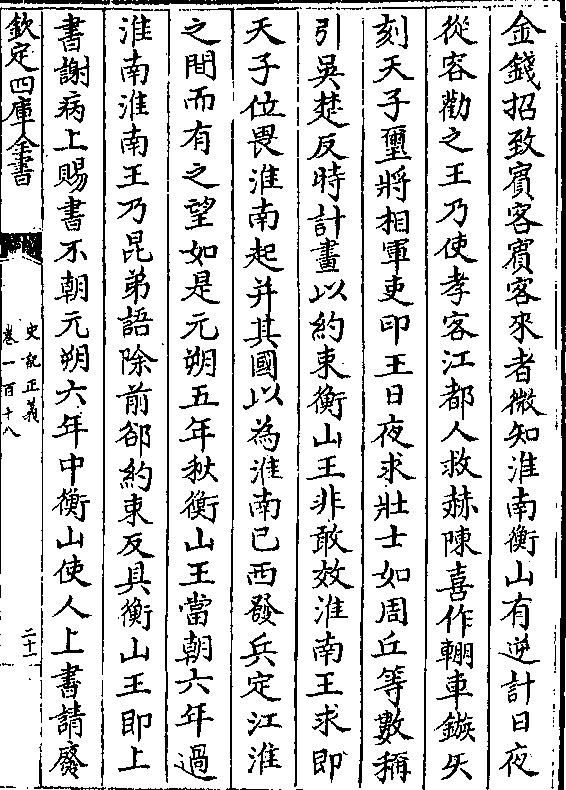 金錢招致賓客賓客來者微知淮南衡山有逆計日夜
從容勸之王乃使孝客江都人救赫陳喜作輣車鏃矢
刻天子璽將相軍吏印王日夜求壯士如周丘等數稱
引吳楚反時計畫以約束衡山王非敢效淮南王求即
天子位畏淮南起并其國以為淮南已西發兵定江淮
之間而有之望如是元朔五年秋衡山王當朝六年過
淮南淮南王乃昆弟語除前郤約束反具衡山王即上
書謝病上賜書不朝元朔六年中衡山使人上書請廢
欽定四庫全書
史記正義
卷一百十八
二十一